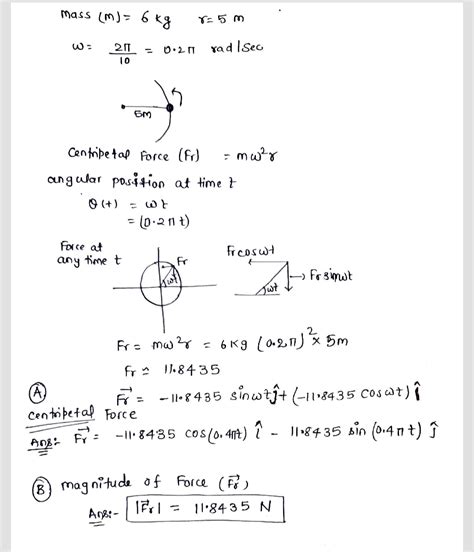 mass (m) = 6 kg    r = 5 m
ω = 2π/10 = 0.2π rad/sec
5m
Centripetal Force (Fr) = mω²r
angular position at time t
θ(t) = ωt
= (0.2πt)
Force at any time t
Fr
ωt
Fr cosωt
Fr sinωt
ωt
Fr = mω²r = 6kg (0.2π)² × 5m
Fr = 11.8435
(A)
F⃗r = -11.8435 sinωt ĵ + (-11.8435 cosωt) î
centripetal Force
Ans:- F⃗r = -11.8435 cos(0.4πt) î - 11.8435 sin (0.4πt) ĵ
(B) magnitude of Force (F⃗r)
Ans:- |F⃗r| = 11.8435 N